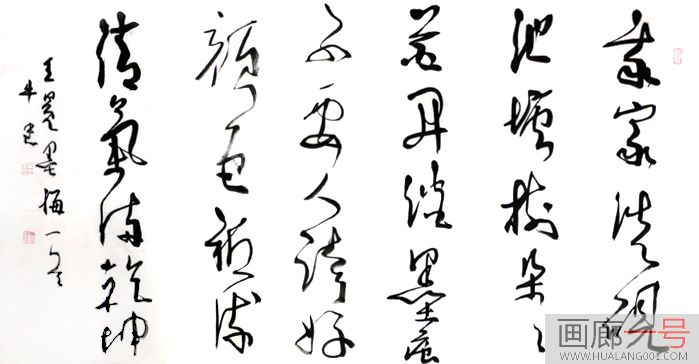 我家洗砚
池头树朵々
花开淡墨痕
不要人誇好
颜色祇流
清氣满乾坤
王冕墨梅一首
画廊一号
WWW.HUALANG001.COM